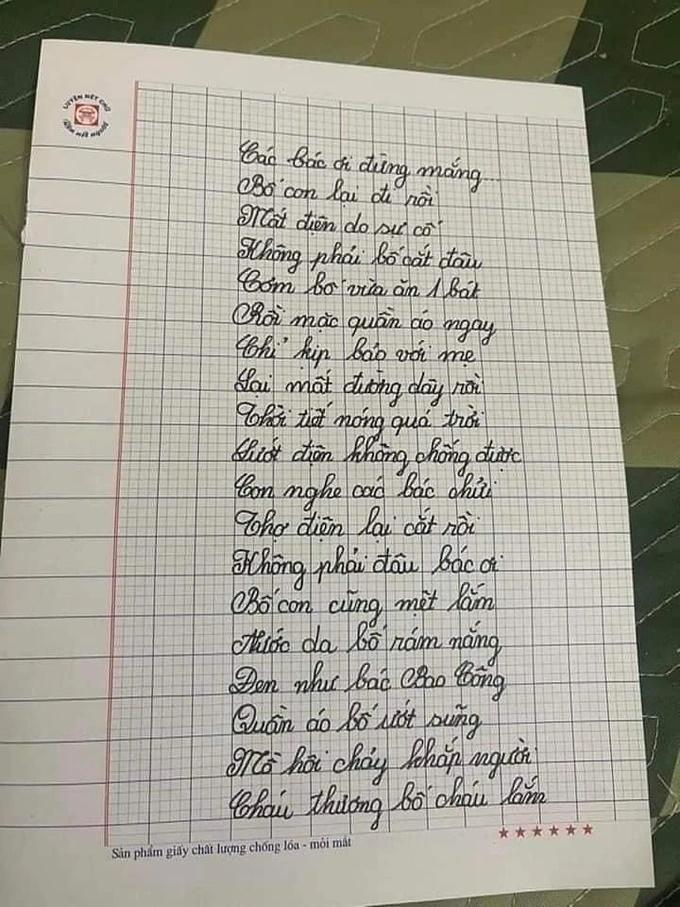 LUYỆN NÉT CHỮ
Rèn nết người
Các bác ơi đừng mắng...
Bố con lại đi rồi
Mất điện do sự cố
Không phải bố cắt đâu
Cơm bố vừa ăn 1 bát
Rồi mặc quần áo ngay
Chỉ kịp bảo với mẹ
Lại mất đường dây rồi
Thời tiết nóng quá trời
Lưới điện không chống được
Con nghe các bác chửi
Thợ điện lại cắt rồi
Không phải đâu bác ơi
Bố con cũng mệt lắm
Nước da bố rám nắng
Đen như bác Bao Công
Quần áo bố ướt sũng
Mồ hôi chảy khắp người
Cháu thương bố cháu lắm
Sản phẩm giấy chất lượng chống lóa - mỏi mắt